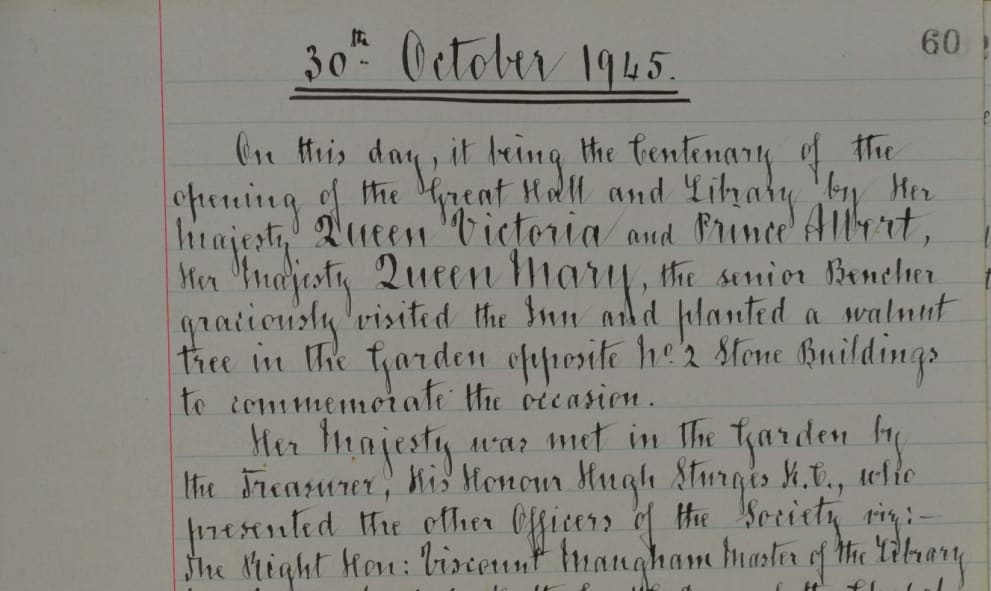 60
30th October 1945.
On this day, it being the Centenary of the
opening of the Great Hall and Library by Her
Majesty Queen Victoria and Prince Albert,
Her Majesty Queen Mary, the senior Bencher
graciously visited the Inn and planted a walnut
tree in the Garden opposite No. 2 Stone Buildings
to commemorate the occasion.
Her Majesty was met in the Garden by
the Treasurer, His Honour Hugh Sturges K.C., who
presented the other Officers of the Society viz:-
The Right Hon: Viscount Maugham Master of the Library